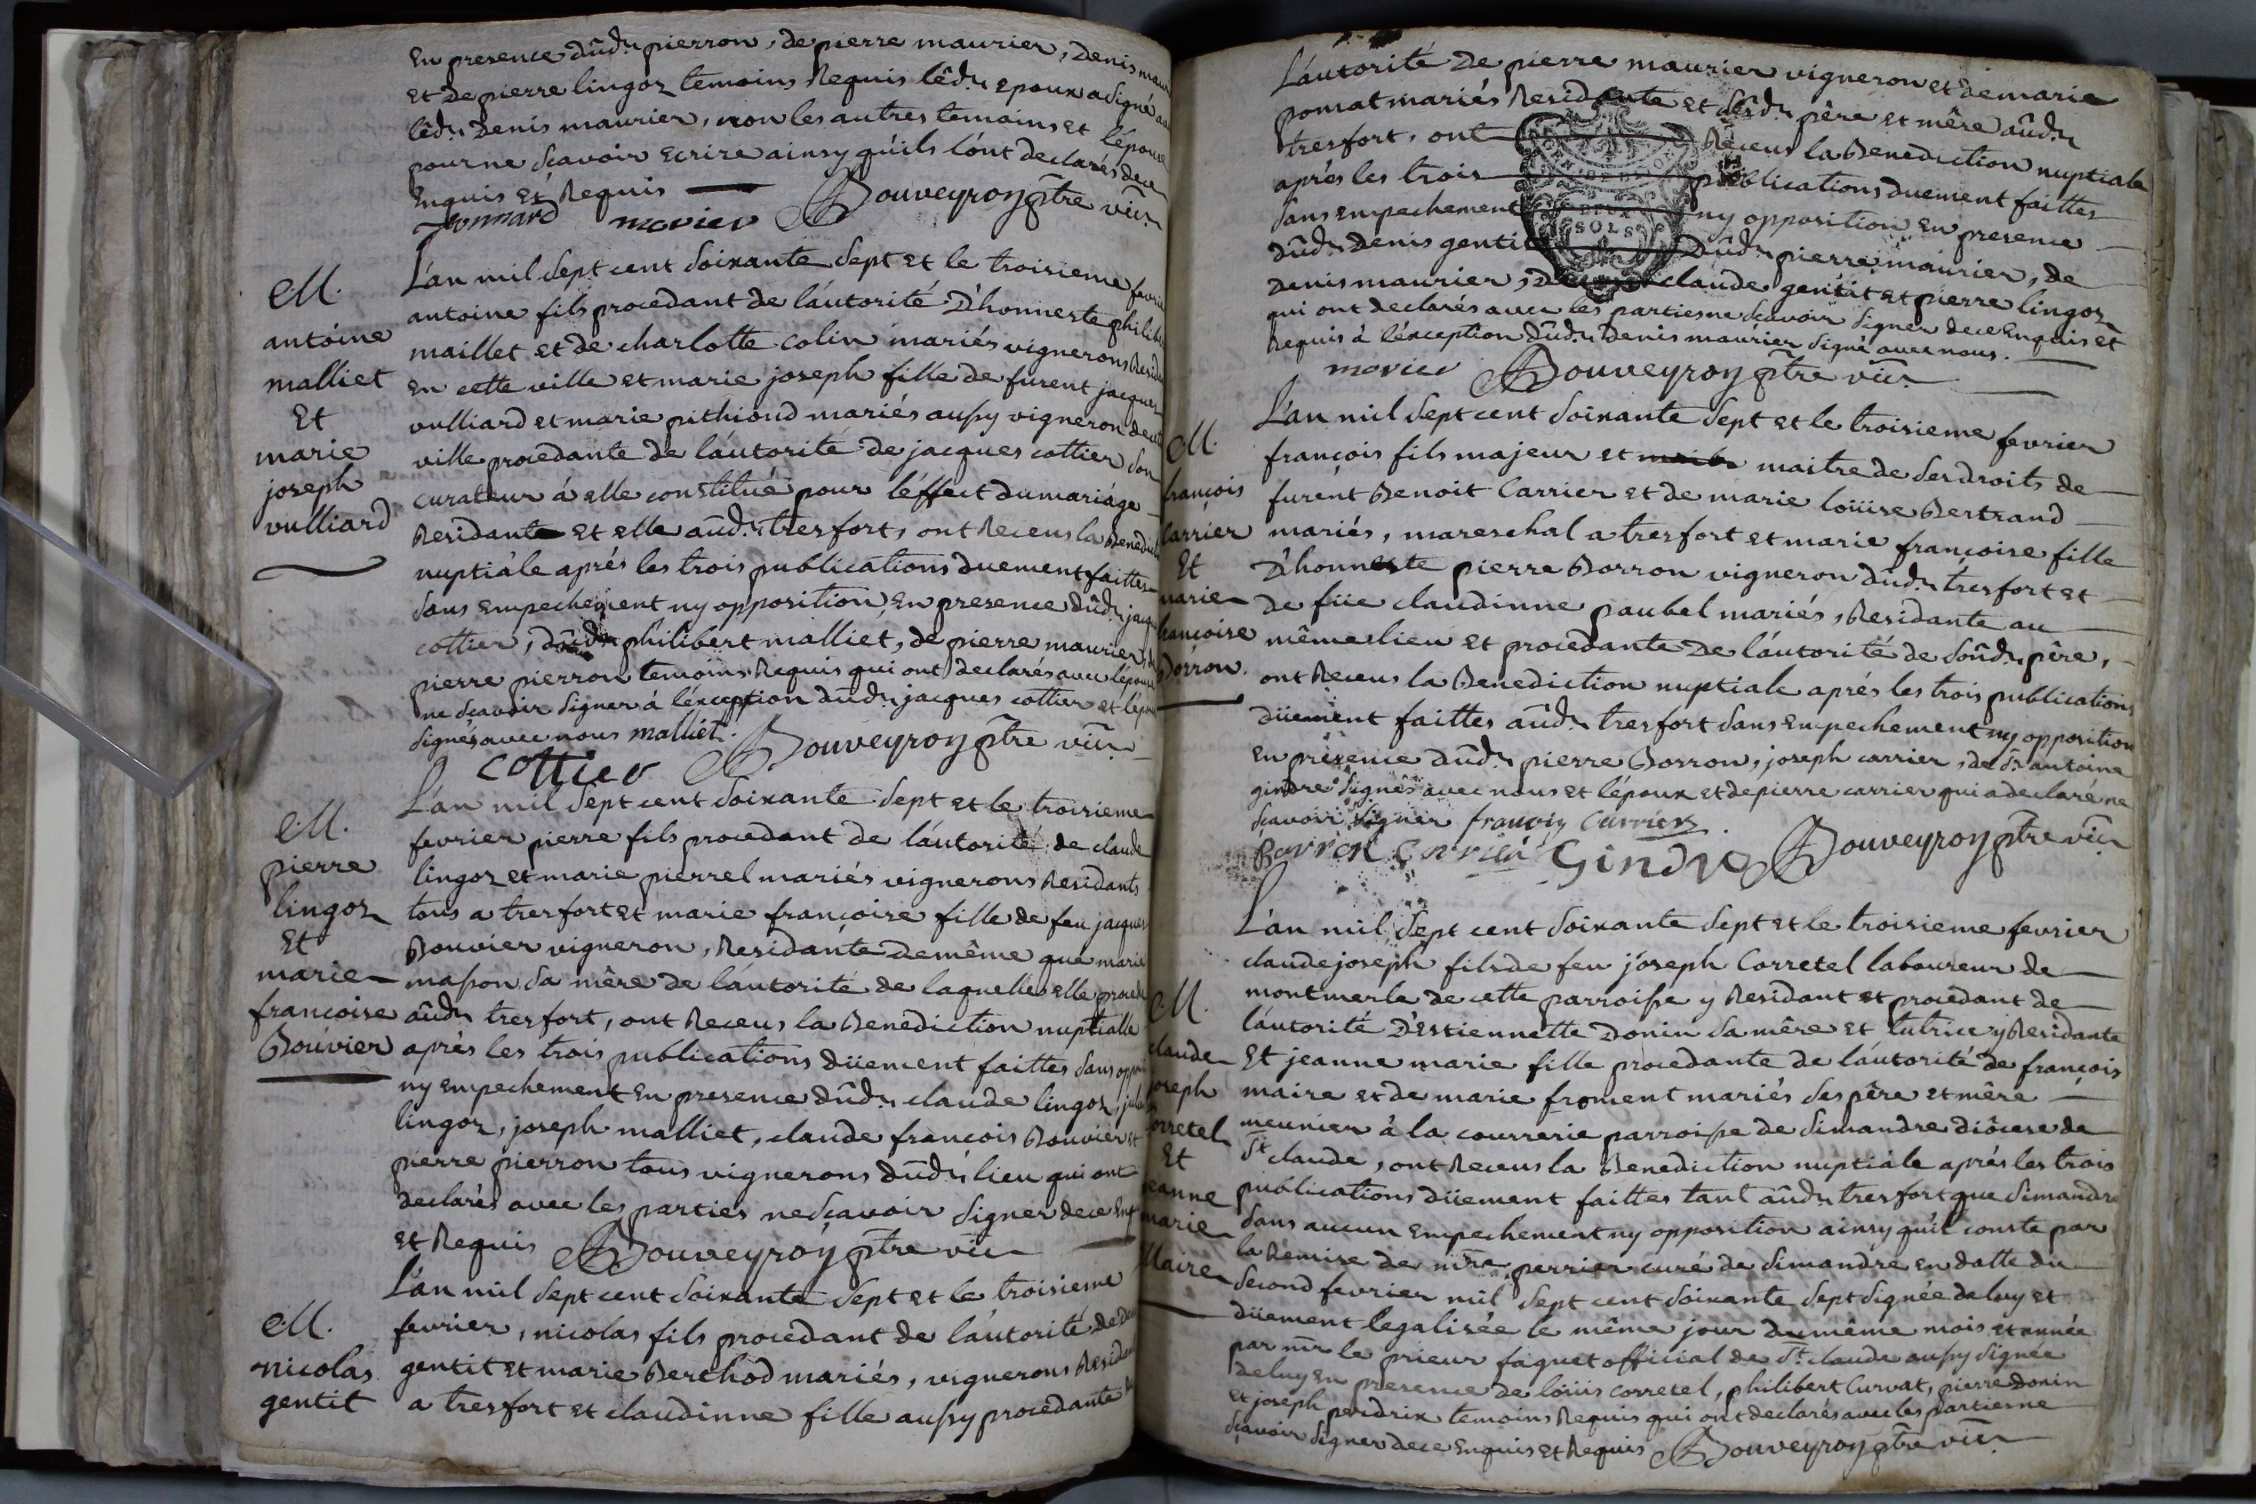 En presence dûd. pierron, de pierre maurier, Denis
et de pierre lingoz temoins Requis lêd. epoux a signé
lêd. Denis maurier, non les autres temoins et l'épouse
pour ne sçavoir ecrire ainsy qu'ils l'ont declarés de ce
Enquis et Requis
monnard morier Bouveyron ptre vic
M.
antoine
malliet
Et
marie
joseph
vulliard
L'an mil sept cent soixante sept et le troisieme fevrier
antoine fils procedant de l'autorité D'honneste philibert
maillet et de charlotte colin mariés vignerons Resid
en cette ville et marie joseph fille de furent jacques
vulliard et marie pithioud mariés aussy vigneron de
ville procedante de l'autorité de jacques cottier son
curateur á elle constitué pour l'éffect du mariage
Residante et elle aûd. tresfort, ont Receus la Benedic
nuptiàle aprés les trois publications duement faittes
sans empechement ny opposition, en presence dûd. jacq
cottier, dûd. philibert malliet, de pierre maurier, de
pierre pierron temoins Requis qui ont declarés avec l'épouse
ne sçavoir signer á l'éxception dûd. jacques cottier et l'ép
signés avec nous malliet.
cottier Bouveyron ptre vic
M.
pierre
lingoz
Et
marie
francoise
Bouvier
L'an mil sept cent soixante sept et le troisieme
fevrier pierre fils procedant de l'autorité de claude
lingoz et marie pierrel mariés vignerons Residants
tous a tresfort et marie françoise fille de feu jacques
Bouvier vigneron, Residante de même que marie
masson sa mêre de l'autorité de laquelle elle procede
aûd. tresfort, ont Receus la Benediction nuptialle
aprés les trois publications düement faittes sans oppo
ny empechement en presence dûd. claude lingoz,
lingoz, joseph malliet, claude françois Bouvier et
pierre pierron tous vignerons dûd. lieu qui ont
declarés avec les parties ne sçavoir signer de ce enq
et Requis Bouveyron ptre vic
M.
nicolas
gentit
L'an mil sept cent soixante sept et le troisieme
fevrier, nicolas fils procedant de l'autorité de de
gentit et marie Berthod mariés, vignerons Resid
a tresfort et claudinne fille aussy procedante de
L'autorité de pierre maurier vigneron et de marie
pomat mariés Residante et sesd. pêre et mêre aûd.
tresfort, ont Receus la Benediction nuptiale
aprés les trois publications duement faittes
sans empechement ny opposition en presence
dûd. Denis gentit dûd. pierre maurier, de
Denis maurier, claude gentit et pierre lingoz
qui ont declarés avec les parties ne sçavoir signer de ce Enquis et
Requis á l'éxception dûd. Denis maurier signé avec nous.
morier Bouveyron ptre vic
DEUX
SOLS
M.
françois
Carrier
Et
marie
francoise
Borron.
L'an mil sept cent soixante sept et le troisieme fevrier
françois fils majeur et maitre de ses droits de
furent Benoit Carrier et de marie loüise Bertrand
mariés, mareschal a tresfort et marie françoise fille
D'honneste pierre Borron vigneron dûd. tresfort et
de füe claudinne paubel mariés, Residante au
même lieu et procedante de l'autorité de sond. pêre,
ont Receus la Benediction nuptiale aprés les trois publications
düement faittes aûd. tresfort sans empechement ny opposition
en présence dûd. pierre Borron, joseph carrier, de sr. antoine
gindre signés avec nous et l'époux et de pierre carrier qui a declaré ne
sçavoir signer françoiy Carrier
Borron Carrier Gindre Bouveyron ptre vic
M.
claude
joseph
Corretel
Et
jeanne
marie
Maire
L'an mil sept cent soixante sept et le troisieme fevrier
claude joseph fils de feu joseph Corretel laboureur de
montmerle de cette parroisse y Residant et procedant de
l'autorité D'Estiennette Donin sa mêre et tutrice y Residante
et jeanne marie fille procedante de l'autorité de françois
maire et de marie froment mariés ses pêre et mêre
meunier á la courrerie parroisse de simandre diôcese de
St. claude, ont Receus la Benediction nuptiale aprés les trois
publications düement faittes tant aûd. tresfort que simandre
sans aucun empechement ny opposition ainsy qu'il conste par
la Remise de mre perrier curé de simandre en datte du
second fevrier mil sept cent soixante sept signée de luy et
düement legalisée le même jour du même mois et année
par mr le prieur faquet official de St. claude aussy signée
de luy en presence de loüis corretel, philibert Curvat, pierre donin
et joseph perdrix temoins Requis qui ont declarés avec les parties ne
sçavoir signer de ce Enquis et Requis Bouveyron ptre vic